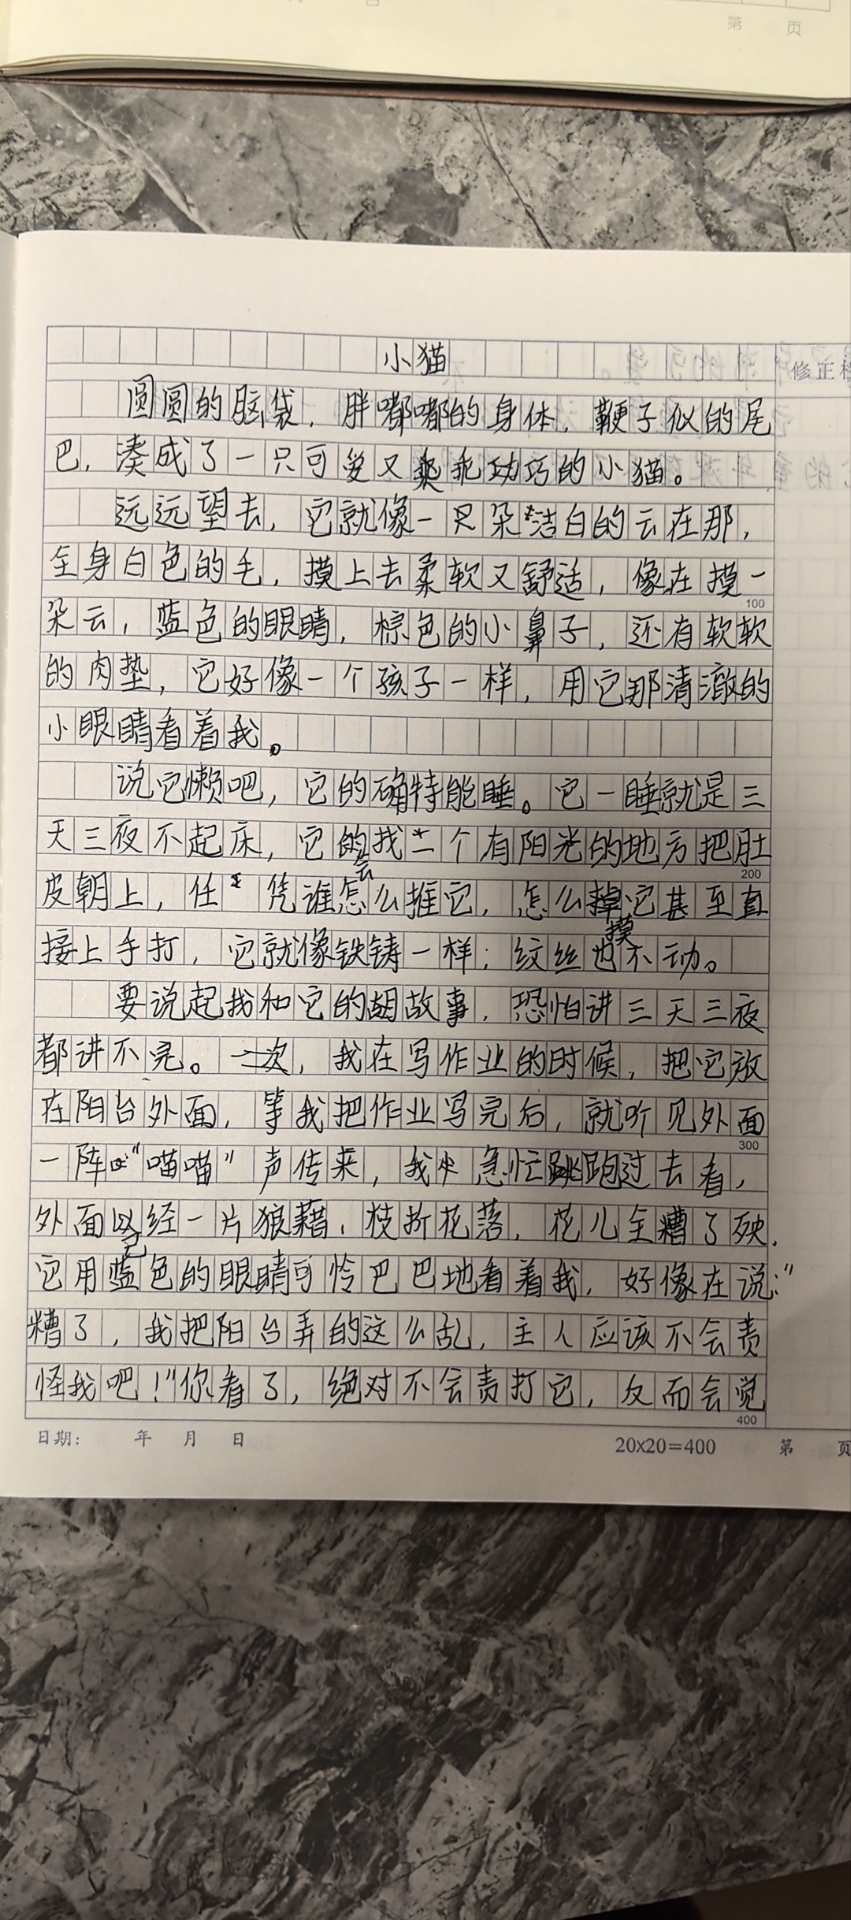 第 页
小猫
圆圆的脑袋，胖嘟嘟的身体，鞭子似的尾
巴，凑成了一只可爱又乖巧的小猫。
远远望去，它就像一朵洁白的云在那，
全身白色的毛，摸上去柔软又舒适，像在摸一
100
朵云，蓝色的眼睛，棕色的小鼻子，还有软软
的肉垫，它好像一个孩子一样，用它那清澈的
小眼睛看着我。
说它懒吧，它的确特能睡。它一睡就是三
天三夜不起床，它会找一个有阳光的地方把肚
200
皮朝上，任凭谁怎么推它，怎么摸它甚至直
接上手打，它就像铁铸一样；纹丝也不动。
要说起我和它的故事，恐怕讲三天三夜
都讲不完。一次，我在写作业的时候，把它放
在阳台外面，等我把作业写完后，就听见外面
300
一阵“喵喵”声传来，我急忙跑过去看，
外面已经一片狼藉，枝折花落，花儿全糟了殃，
它用蓝色的眼睛可怜巴巴地看着我，好像在说：“
糟了，我把阳台弄的这么乱，主人应该不会责
怪我吧！”你看了，绝对不会责打它，反而会觉
400
日期： 年 月 日 20x20=400 第 页